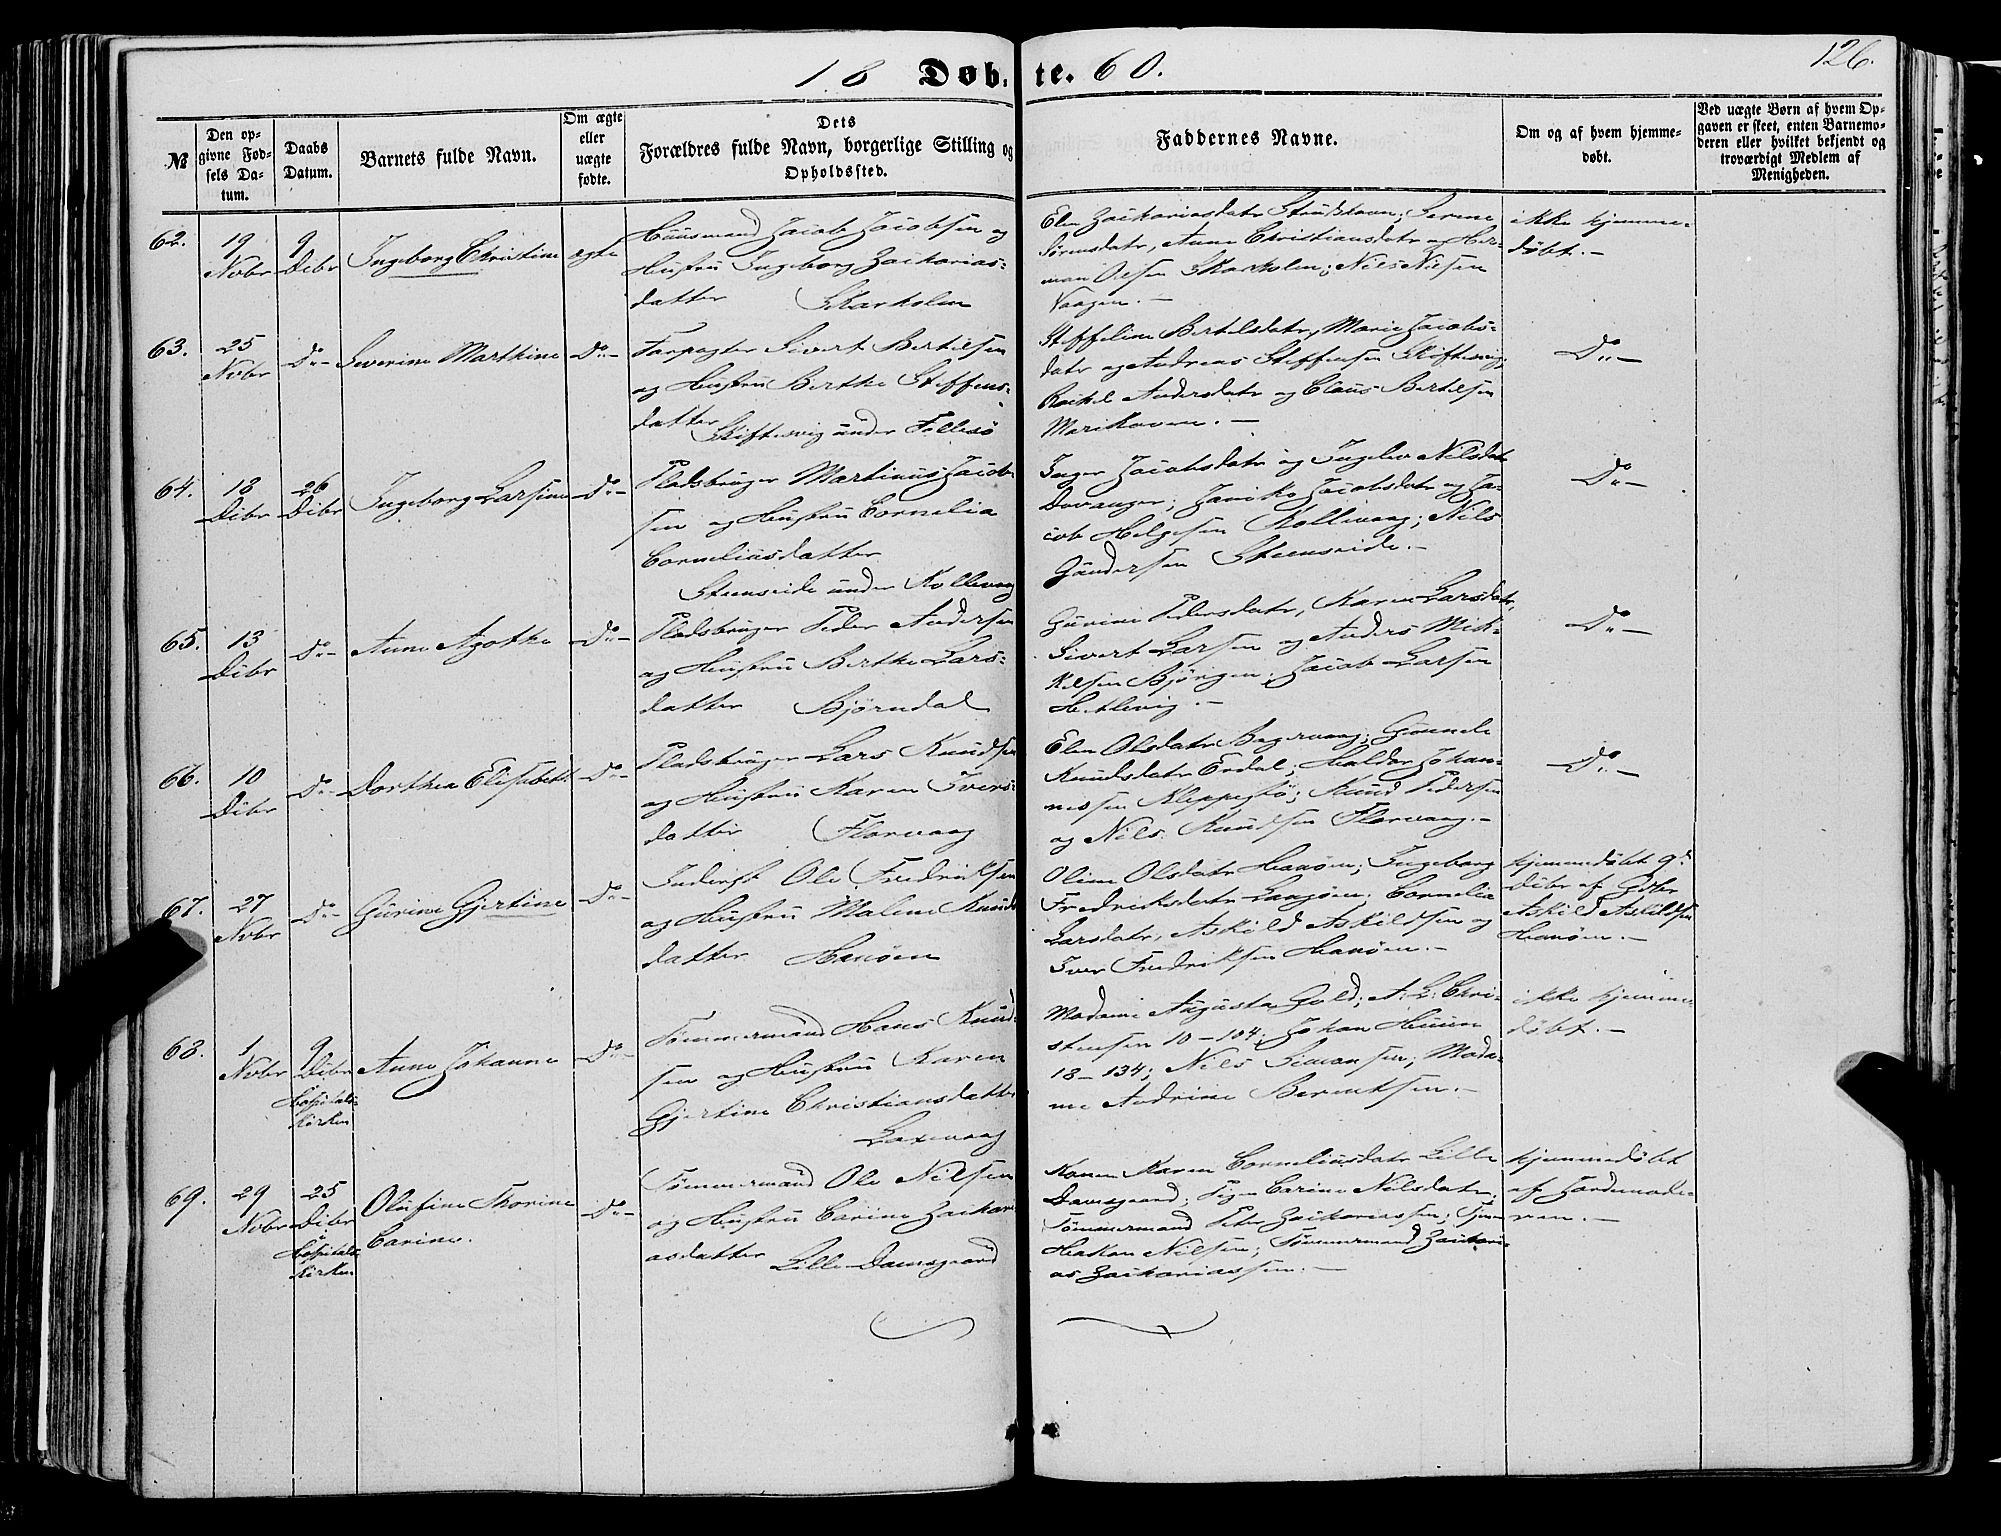 126.
18 Døb- te. 60.
№
Den op-
givne Fød-
sels Da-
tum.
Daabs
Datum.
Barnets fulde Navn.
Om ægte
eller
uægte
fødte.
Dets
Forældres fulde Navn, borgerlige Stilling og
Opholdssted.
Faddernes Navne.
Om og af hvem hjemme-
døbt.
Ved uægte Børn af hvem Op-
gaven er skeet, enten Barnemo-
deren eller hvilket bekjendt og
troværdigt Medlem af
Menigheden.
62.
19
Nvbr
9
Dcbr
Ingeborg Christine
ægte
Huusmand Jacob Jacobsen og
Hustru Ingeborg Zacharias-
datter Skarholm
Elen Zachariasdatr Strudshavn; Serine
Sørensdatr, Anne Christiansdatr og Her-
man Olsen Skarholm; Nils Nilsen
Vaagen.-
ikke hjemme-
døbt.-
63.
25
Nvbr
Do-
Severine Marthine
Do-
Forpagter Sivert Bertelsen
og Hustru Berthe Steffens-
datter
Skiftesvig under Follesø
Steffeline Bertelsdatr, Marie Jacobs-
datr og Andreas Steffensen Skiftesvig,
Rachel Andersdatr og Claus Bertelsen
Marikoven.-
Do-
64.
18
Dcbr
26
Dcbr
Ingeborg Larsine
Do-
Pladsbruger Martinus Jacob-
sen og Hustru Cornelia
Corneliusdatter
Steenseide under Kollevaag
Inger Jacobsdatr og Ingelev Nilsdatr
Davanger; Janike Jacobsdatr og Ja-
cob Helgesen Kollevaag; Nils
Gundersen Steenseide.-
Do-
65.
13
Dcbr
Do-
Anne Agathe
Do-
Pladsbruger Peder Andersen
og Hustru Berthe Lars-
datter Bjørndal
Gurine Pedersdatr, Karen Larsdatr,
Sivert Larsen og Anders Mik-
kelsen Bjørgen; Jacob Larsen
Hetlevig.-
Do-
66.
10
Dcbr
Do-
Dorthea Elisabeth
Do-
Pladsbruger Lars Knudsen
og Hustru Karen Ivers-
datter Florvaag
Elen Olsdatr Bagervaag; Gunnele
Knudsdatr Erdal; Haldor Johan-
nessen Kleppestø; Knud Pedersen
og Nils Knudsen Florvaag.-
Do-
67.
27
Nvbr
Do-
Gurine Gjertine
Do-
Inderst Ole Fredriksen
og Hustru Malene Knuds-
datter Hanøen
Oline Olsdatr Hanøen; Ingeborg
Fredriksdatr Langøen; Cornelia
Larsdatr, Askild Askildsen og
Iver Fredriksen Hanøen.-
hjemmedøbt 9d
Dcbr af Gdbr
Askild Askildsen
Hanøen.-
68.
1
Nvbr
9
Dcbr
Hospitals-
kirken
Anne Johanne
Do-
Tømmermand Hans Knud-
sen og Hustru Karen
Gjertine Christiansdatter
Laxevaag
Madame Augusta Gold; A: L: Chri-
stensen 10-104; Johan Huun
18-134; Nils Simonsen; Mada-
me Andrine Berentsen.-
ikke hjemme-
døbt.-
69.
29
Nvbr
25
Dcbr
Hospitals-
kirken
Olufine Thorine
Carine.
Do-
Tømmermand Ole Nilsen
og Hustru Carine Zachari-
asdatter Lille Damsgaard
Konen Karen Corneliusdatr Lille
Damsgaard; Pigen Carine Nilsdatr;
Tømmermand Peter Zachariassen; Tjener
Hakon Nilsen; Tømmermand Zachari-
as Zachariassen.-
hjemmedøbt
af Jordemode-
ren.-